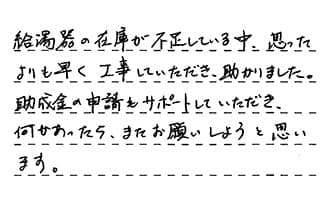 給湯器の在庫が不足している中、思った
よりも早く工事していただき、助かりました。
助成金の申請もサポートしていただき、
何かあったら、またお願いしようと思い
ます。